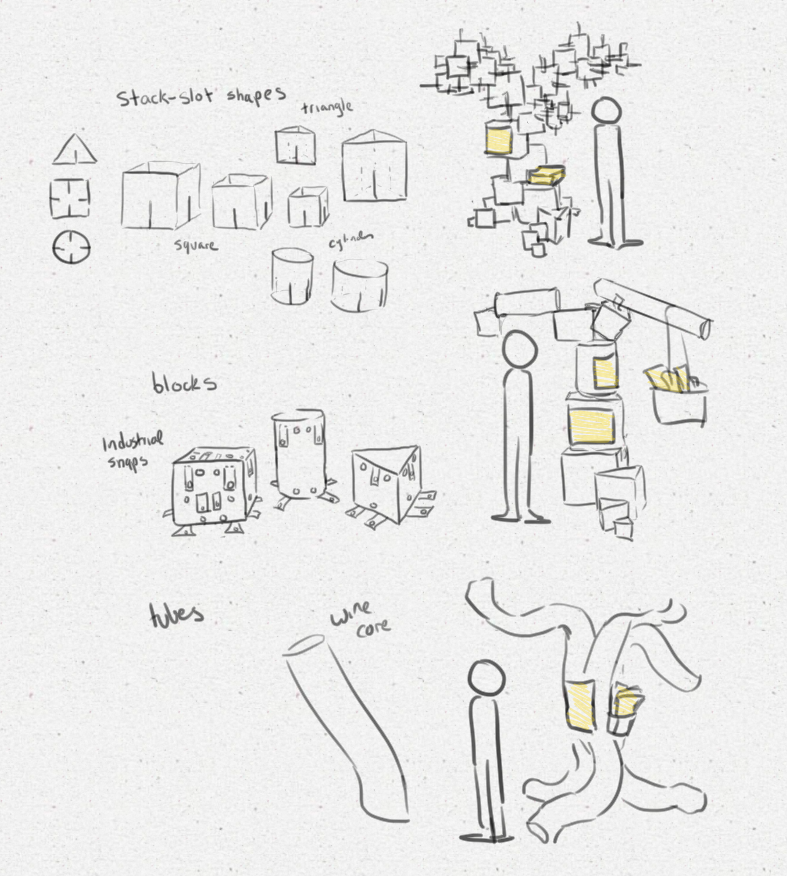 Stack-slot shapes
triangle
square
cylinder
blocks
Industrial
snaps
tubes
wire
core